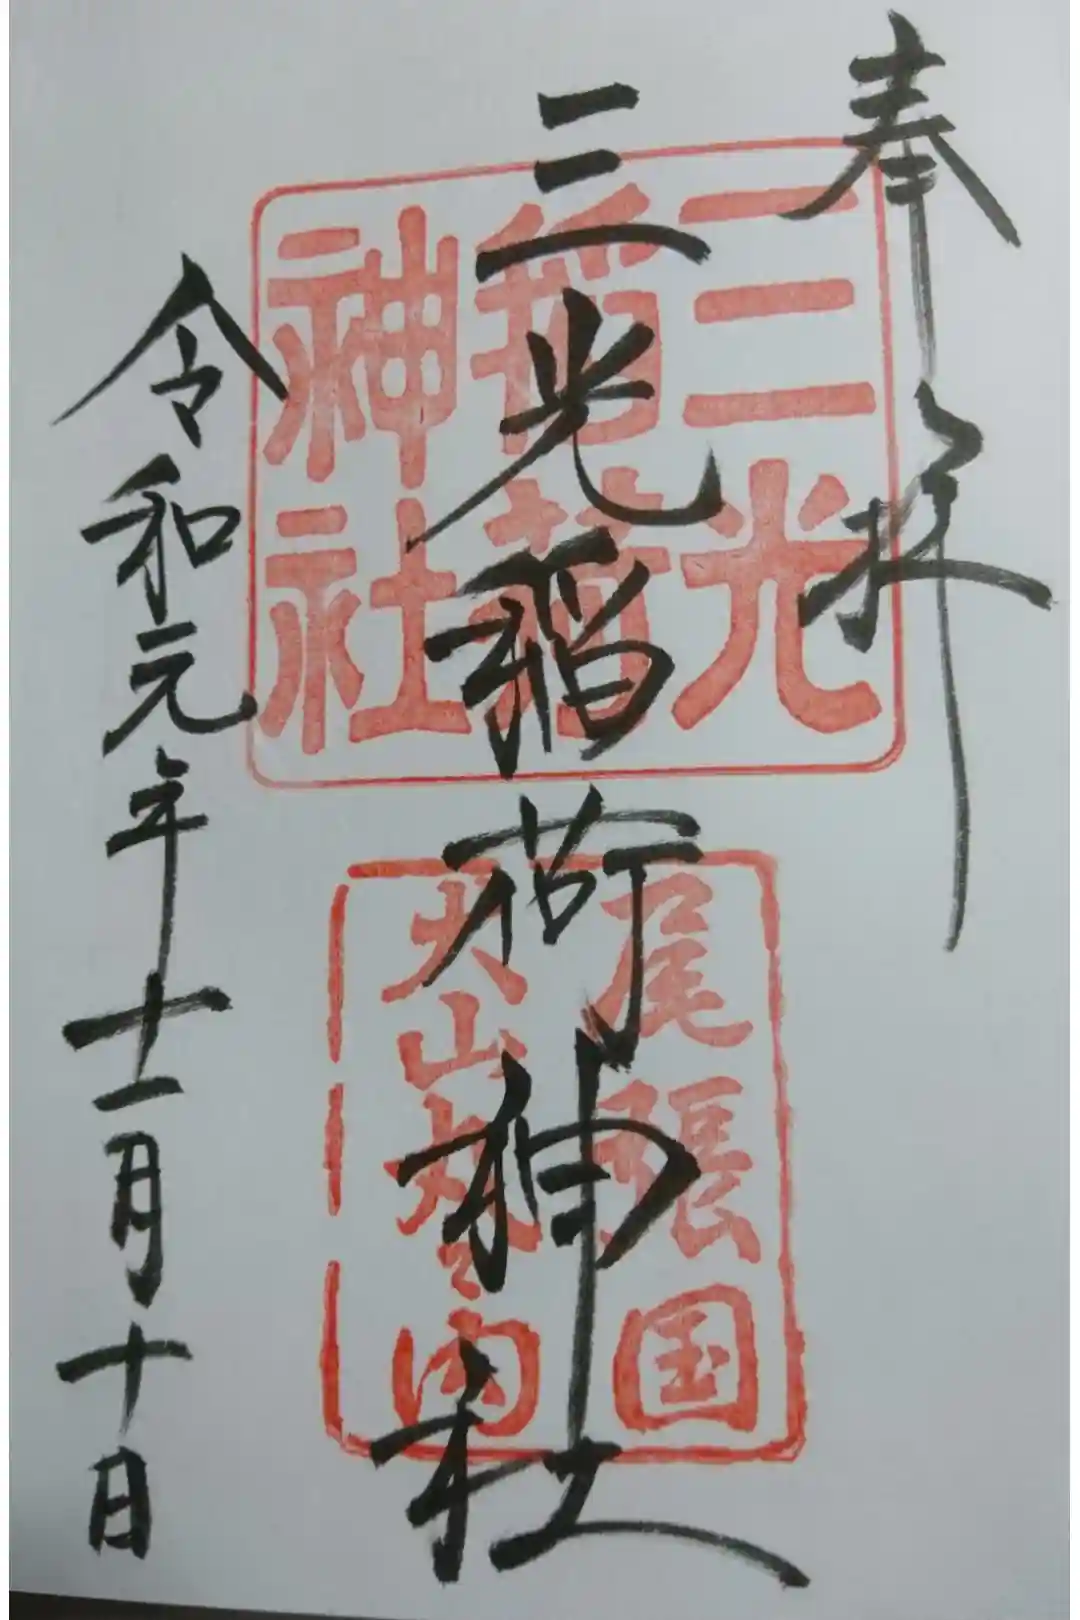 奉拝
三光稲荷神社
令和元年十一月十日
三光
稲荷
神社
尾張国
犬山城之内